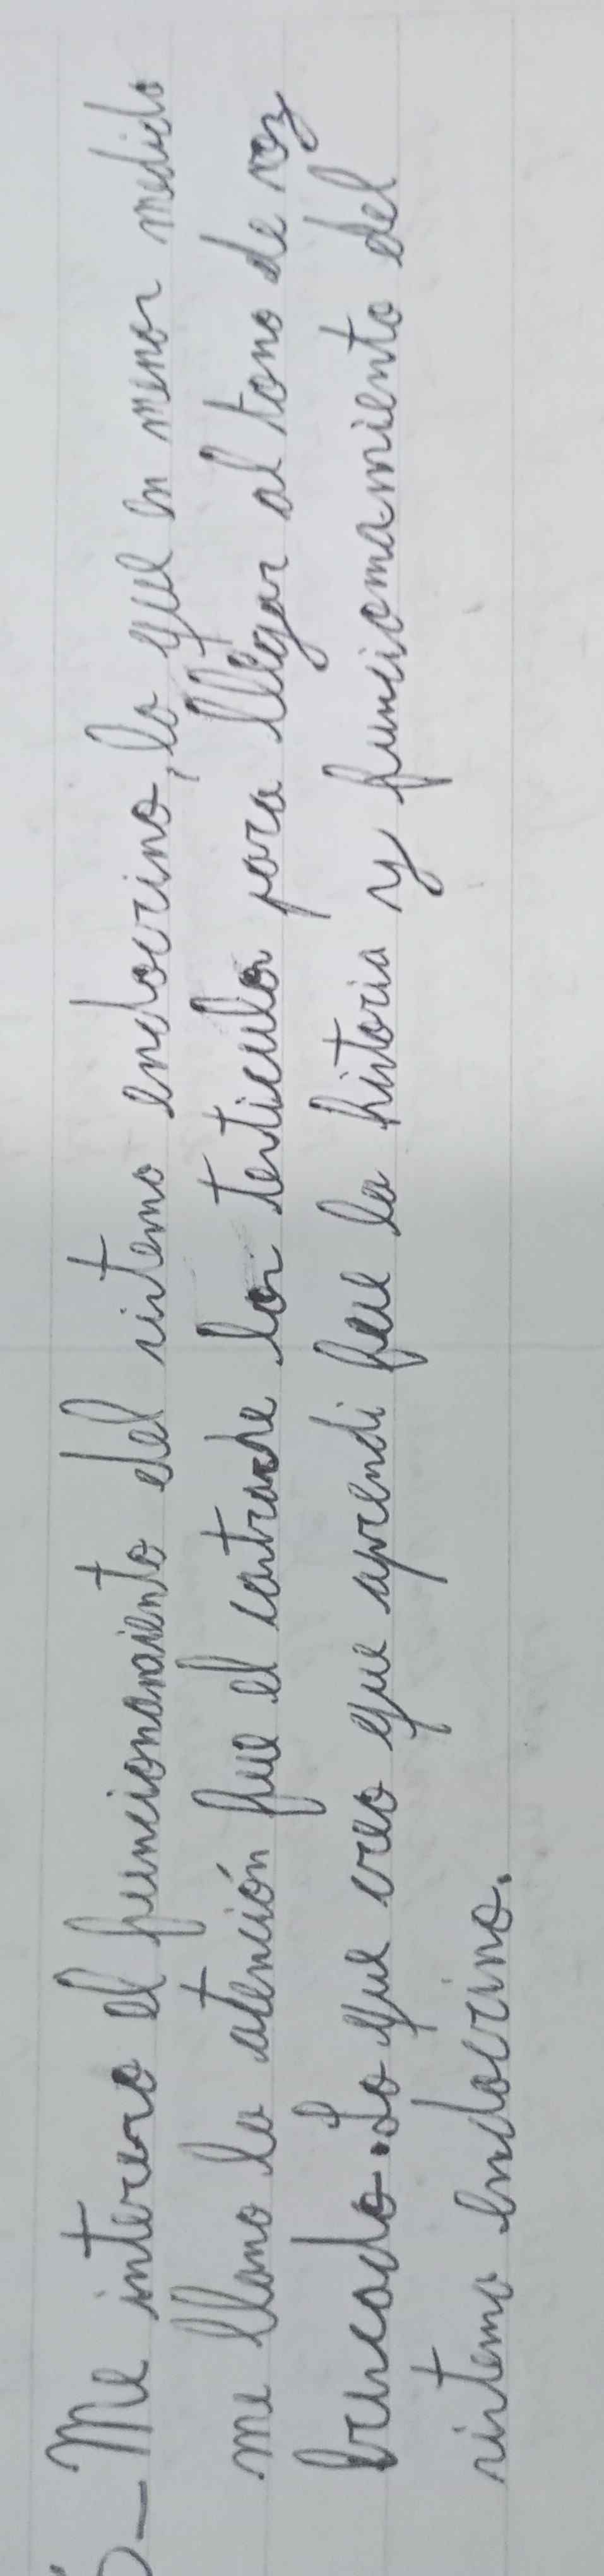 - Me intereso el funcionamiento del sistema endocrino, lo que en menor medida
me llamo la atención fue el cortarde los testiculos para llegar al tono de voz
buscado. Lo que creo que aprendi fue la historia y funcionamiento del
sistema endocrino.